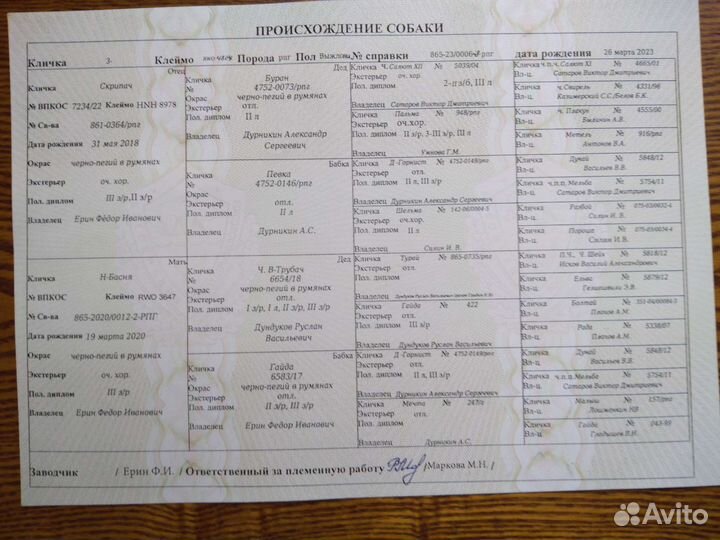 ПРОИСХОЖДЕНИЕ СОБАКИ
Кличка З- Клеймо Порода рпг Пол Выжловка № справки дата рождения 26 марта 2023
Отец
Кличка Скрипач
№ ВПКОС 7234/22 Клеймо HNH 8978
№ Св-ва 861-0364/рпг
Дата рождения 31 мая 2018
Окрас черно-пегий в румянах
Экстерьер оч. хор.
Пол. диплом III з/р,II з/р
Владелец Ерин Фёдор Иванович
Мать
Кличка Н-Басня
№ ВПКОС Клеймо RWO 3647
№ Св-ва 865-2020/0012-2-РПГ
Дата рождения 19 марта 2020
Окрас черно-пегий в румянах
Экстерьер оч. хор.
Пол. диплом III з/р
Владелец Ерин Федор Иванович
Дед
Кличка Буран
№ 4752-0073/рпг
Окрас черно-пегий в румянах
Экстерьер отл.
Пол. диплом II л
Владелец Дурникин Александр
Сергеевич
Бабка
Кличка Певка
№ 4752-0146/рпг
Окрас
Экстерьер отл.
Пол. диплом II л
Владелец Дурникин А.С.
Дед
Кличка Ч. В-Трубач
№ 6654/18
Окрас черно-пегий в румянах
Экстерьер отл.
Пол. диплом I з/р, I л, II з/р, III з/р
Владелец Дундуков Руслан
Васильевич
Бабка
Кличка Гайда
№ 6583/17
Окрас черно-пегий в румянах
Экстерьер отл.
Пол. диплом II з/р, III з/р
Владелец Ерин Федор Иванович
Кличка Ч. Салют XII № 5039/04
Экстерьер оч. хор.
Пол. диплом 2-п з/б, III л
Владелец Сатаров Виктор Дмитриевич
Кличка Пальма № 948/рпг
Экстерьер оч.хор.
Пол. диплом II з/р, 3-III з/р, III л
Владелец Умнова Г.М.
Кличка Д-Горнист № 4752-0148/рпг
Экстерьер отл.
Пол. диплом II л, III з/р
Владелец Дурникин Александр Сергеевич
Кличка Шельма № 142-06/0004-5
Экстерьер отл.
Пол. диплом III з/р
Владелец Силин И. В.
Кличка Турай № 865-0735/рпг
Экстерьер отл.
Пол. диплом III з/р
Владелец Дундуков Руслан Васильевич
Кличка Гайда № 422
Экстерьер отл.
Пол. диплом III з/р
Владелец Дундуков Руслан Васильевич
Кличка Д-Горнист № 4752-0148/рпг
Экстерьер отл.
Пол. диплом II л, III з/р
Владелец Дурникин Александр Сергеевич
Кличка Мечта № 247/г
Экстерьер отл.
Пол. диплом
Владелец Дурникин А.С.
Кличка ч.п.ч. Салют XI № 4665/01
Вл-ц. Сатаров Виктор Дмитриевич
Кличка ч.Свирель № 4331/98
Вл-ц. Казимерский С.С./Белов Б.К.
Кличка № 4555/00
Вл-ц. Былинин А.В.
Кличка Метель № 916/рпг
Вл-ц. Антонов В.А.
Кличка Дунай № 5848/12
Вл-ц. Васильев В.В.
Кличка ч.п.п. Мельба № 5754/11
Вл-ц. Сатаров Виктор Дмитриевич
Кличка Разбой № 075-03/0032-4
Вл-ц. Силин И. В.
Кличка Пороша № 075-03/0034-4
Вл-ц. Силин И. В.
Кличка П.Ч., Ч. Шейх № 5818/12
Вл-ц. Исков Василий Александрович
Кличка Ельва № 5879/12
Вл-ц.
Кличка Болтай № 351-04/00084-3
Вл-ц. Планов А.М.
Кличка Рада № 5338/07
Вл-ц. Планов А.М.
Кличка Дунай № 5848/12
Вл-ц. Васильев В.В.
Кличка ч.п.п. Мельба № 5754/11
Вл-ц. Сатаров Виктор Дмитриевич
Кличка Малыш № 157/рпг
Вл-ц.
Кличка Гайда № 043-99
Вл-ц. Гладышев В.Н.
Заводчик / Ерин Ф.И. / Ответственный за племенную работу /Маркова М.Н. /
Avito